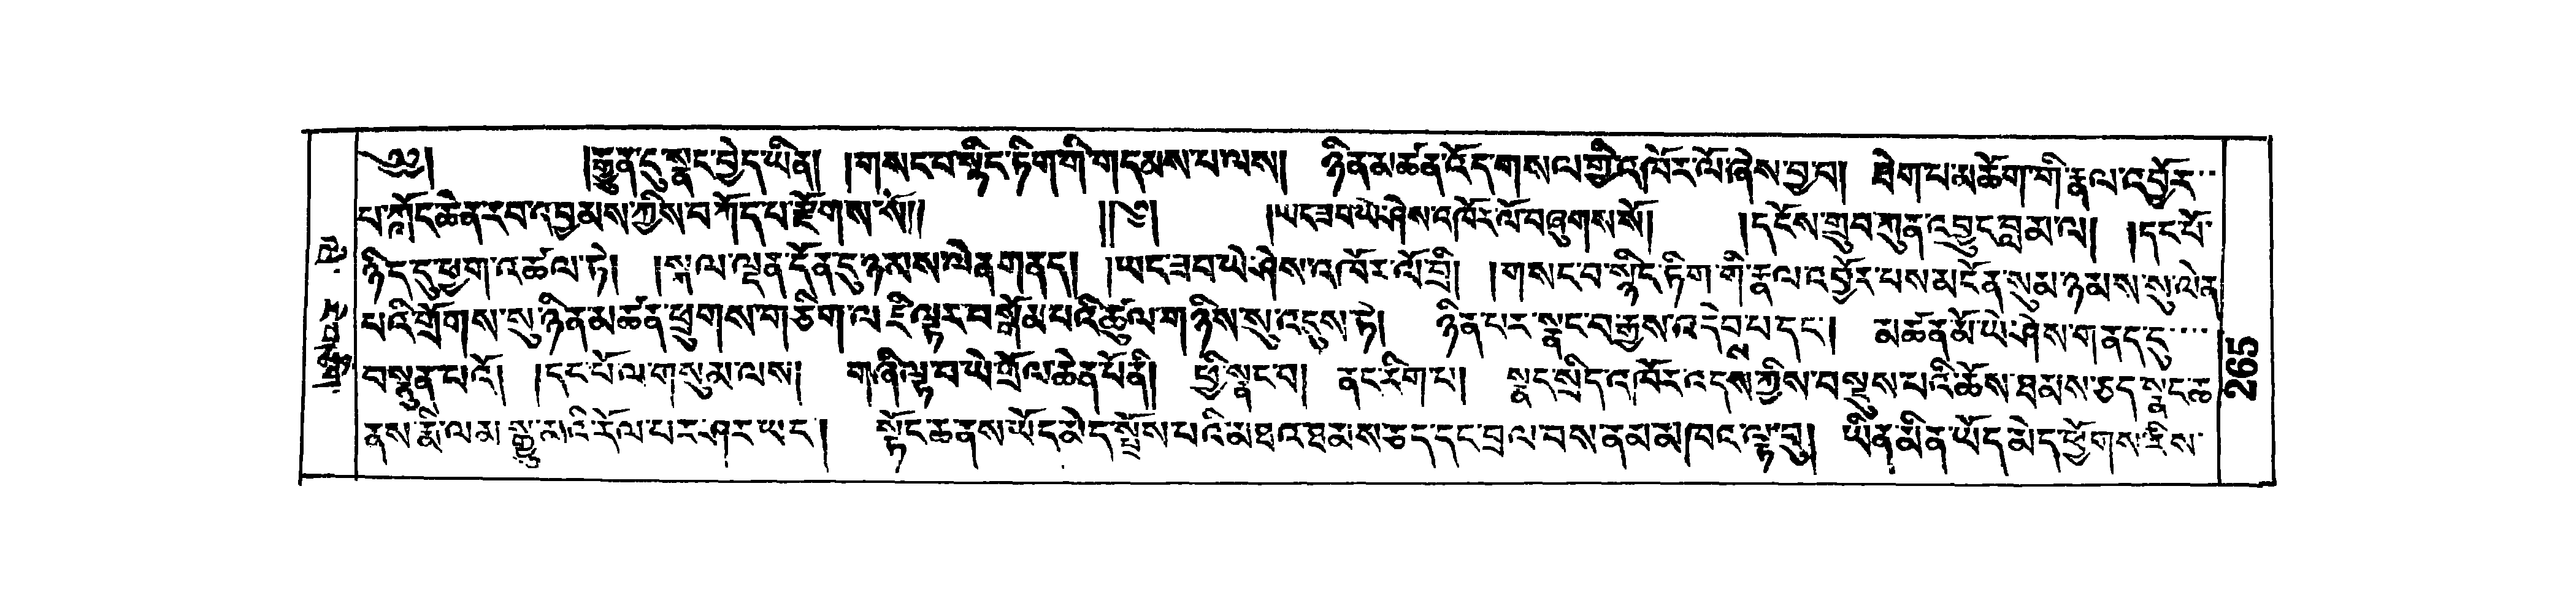 ༄༅། །རྒྱུན་དུ་སྣང་བྱེད་ཡིན། །གསང་བ་སྙིང་ཏིག་གི་གདམས་པ་ལས། ཉིན་མཚན་འོད་གསལ་གྱི་འཁོར་ལོ་ཞེས་བྱ་བ། ཐེག་པ་མཆོག་གི་རྣལ་འབྱོར་
པ་ཀློང་ཆེན་རབ་འབྱམས་ཀྱིས་བཀོད་པ་རྫོགས་སོ།། །།༈། །ཡང་ཟབ་ཡེ་ཤེས་འཁོར་ལོ་བཞུགས་སོ། །དངོས་གྲུབ་ཀུན་འབྱུང་བླ་མ་ལ། །དང་པོ་
ཉིད་དུ་ཕྱག་འཚལ་ཏེ། །སྐལ་ལྡན་དོན་དུ་ཉམས་ལེན་གནད། །ཡང་ཟབ་ཡེ་ཤེས་འཁོར་ལོ་བྲི། །གསང་བ་སྙིང་ཏིག་གི་རྣལ་འབྱོར་པས་མངོན་སུམ་ཉམས་སུ་ལེན་
པའི་གྲོགས་སུ་ཉིན་མཚན་ཕྲུགས་གཅིག་ལ་ཇི་ལྟར་བསྒོམ་པའི་ཚུལ་གཉིས་སུ་འདུས་ཏེ། ཉིན་པར་སྣང་བ་རྒྱས་འདེབས་པ་དང་། མཚན་མོ་ཡེ་ཤེས་གནད་དུ་
བསྣུན་པའོ། །དང་པོ་ལ་གསུམ་ལས། གཞི་ལྟ་བ་ཡེ་གྲོལ་ཆེན་པོ་ནི། ཕྱི་སྣང་བ། ནང་རིག་པ། སྣང་སྲིད་འཁོར་འདས་ཀྱིས་བསྡུས་པའི་ཆོས་ཐམས་ཅད་སྣང་ཆ་
ནས་རྨི་ལམ་སྒྱུ་མའི་རོལ་པར་ཤར་ཡང་། སྟོང་ཆ་ནས་ཡོད་མེད་སྤྲོས་པའི་མཐའ་ཐམས་ཅད་དང་བྲལ་བས་ནམ་མཁའ་ལྟ་བུ། ཡིན་མིན་ཡོད་མེད་ཕྱོགས་རིས་